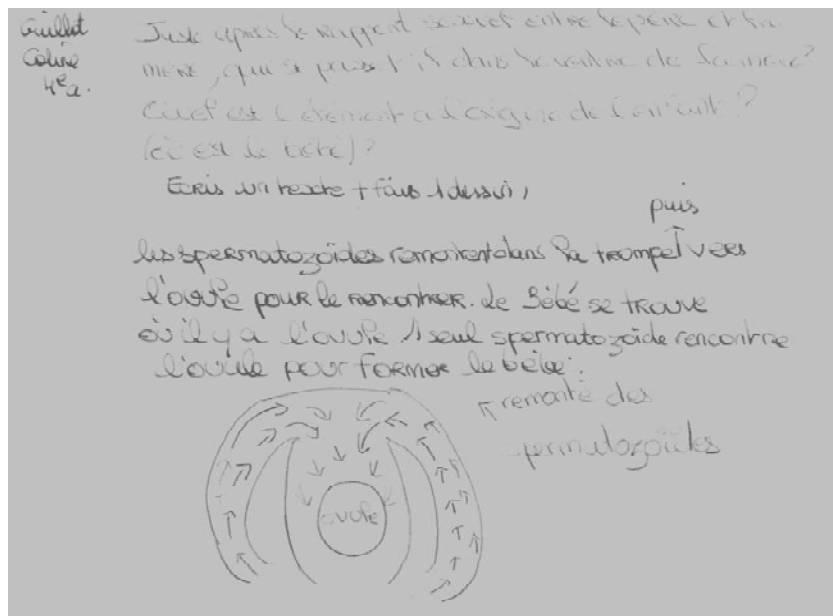 Guillot
Coline
4e a.
Juste après le rapport sexuel entre le père et la
mère, que se passe t'il dans le ventre de la mère?
Quel est l'élément a l'origine de l'enfant?
(où est le bébé)?
Ecris un texte + fais 1 dessin,
puis
les spermatozoïdes remontent dans la trompe vers
l'ovule pour le rencontrer. Le Bébé se trouve
où il y a l'ovule 1 seul spermatozoïde rencontre
l'ovule pour former le bébé.
remonté des
spermatozoïdes
ovule